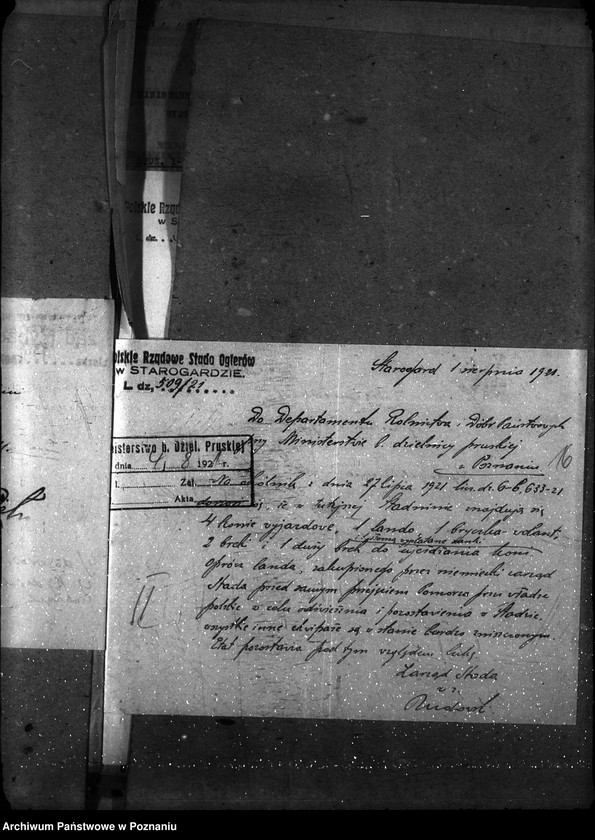 olskie Rząd
w S
olskie Rządowe Stado Ogierów
w STAROGARDZIE.
L. dz. 509/21
Starogard 1 sierpnia 1921.
Do Departamentu Rolnictwa i Dóbr Państwowych
przy Ministerstwie b. dzielnicy pruskiej
w Poznaniu
16
inisterstwo b. Dziel. Pruskiej
dnia 4/8 192 r.
Zał.
Akta
Na okólnik z dnia 27 lipca 1921 L. dz. 6-b, 633-21
donosi się, iż w tutejszej Stadninie znajdują się
4 konie wyjazdowe, 1 lando, 1 bryczka volant,
2 breki i 1 duży brek do ujeżdżania koni
Oprócz landa, zakupionego przez niemiecki zarząd
Stada przed samym przejęciem Pomorza przez władze
polskie w celu odświeżenia i pozostawienia w Stadzie,
wszystkie inne ekwipaże są w stanie bardzo zniszczonym.
Etat pozostawia pod tym względem
Zarząd Stada
II
Archiwum Państwowe w Poznaniu